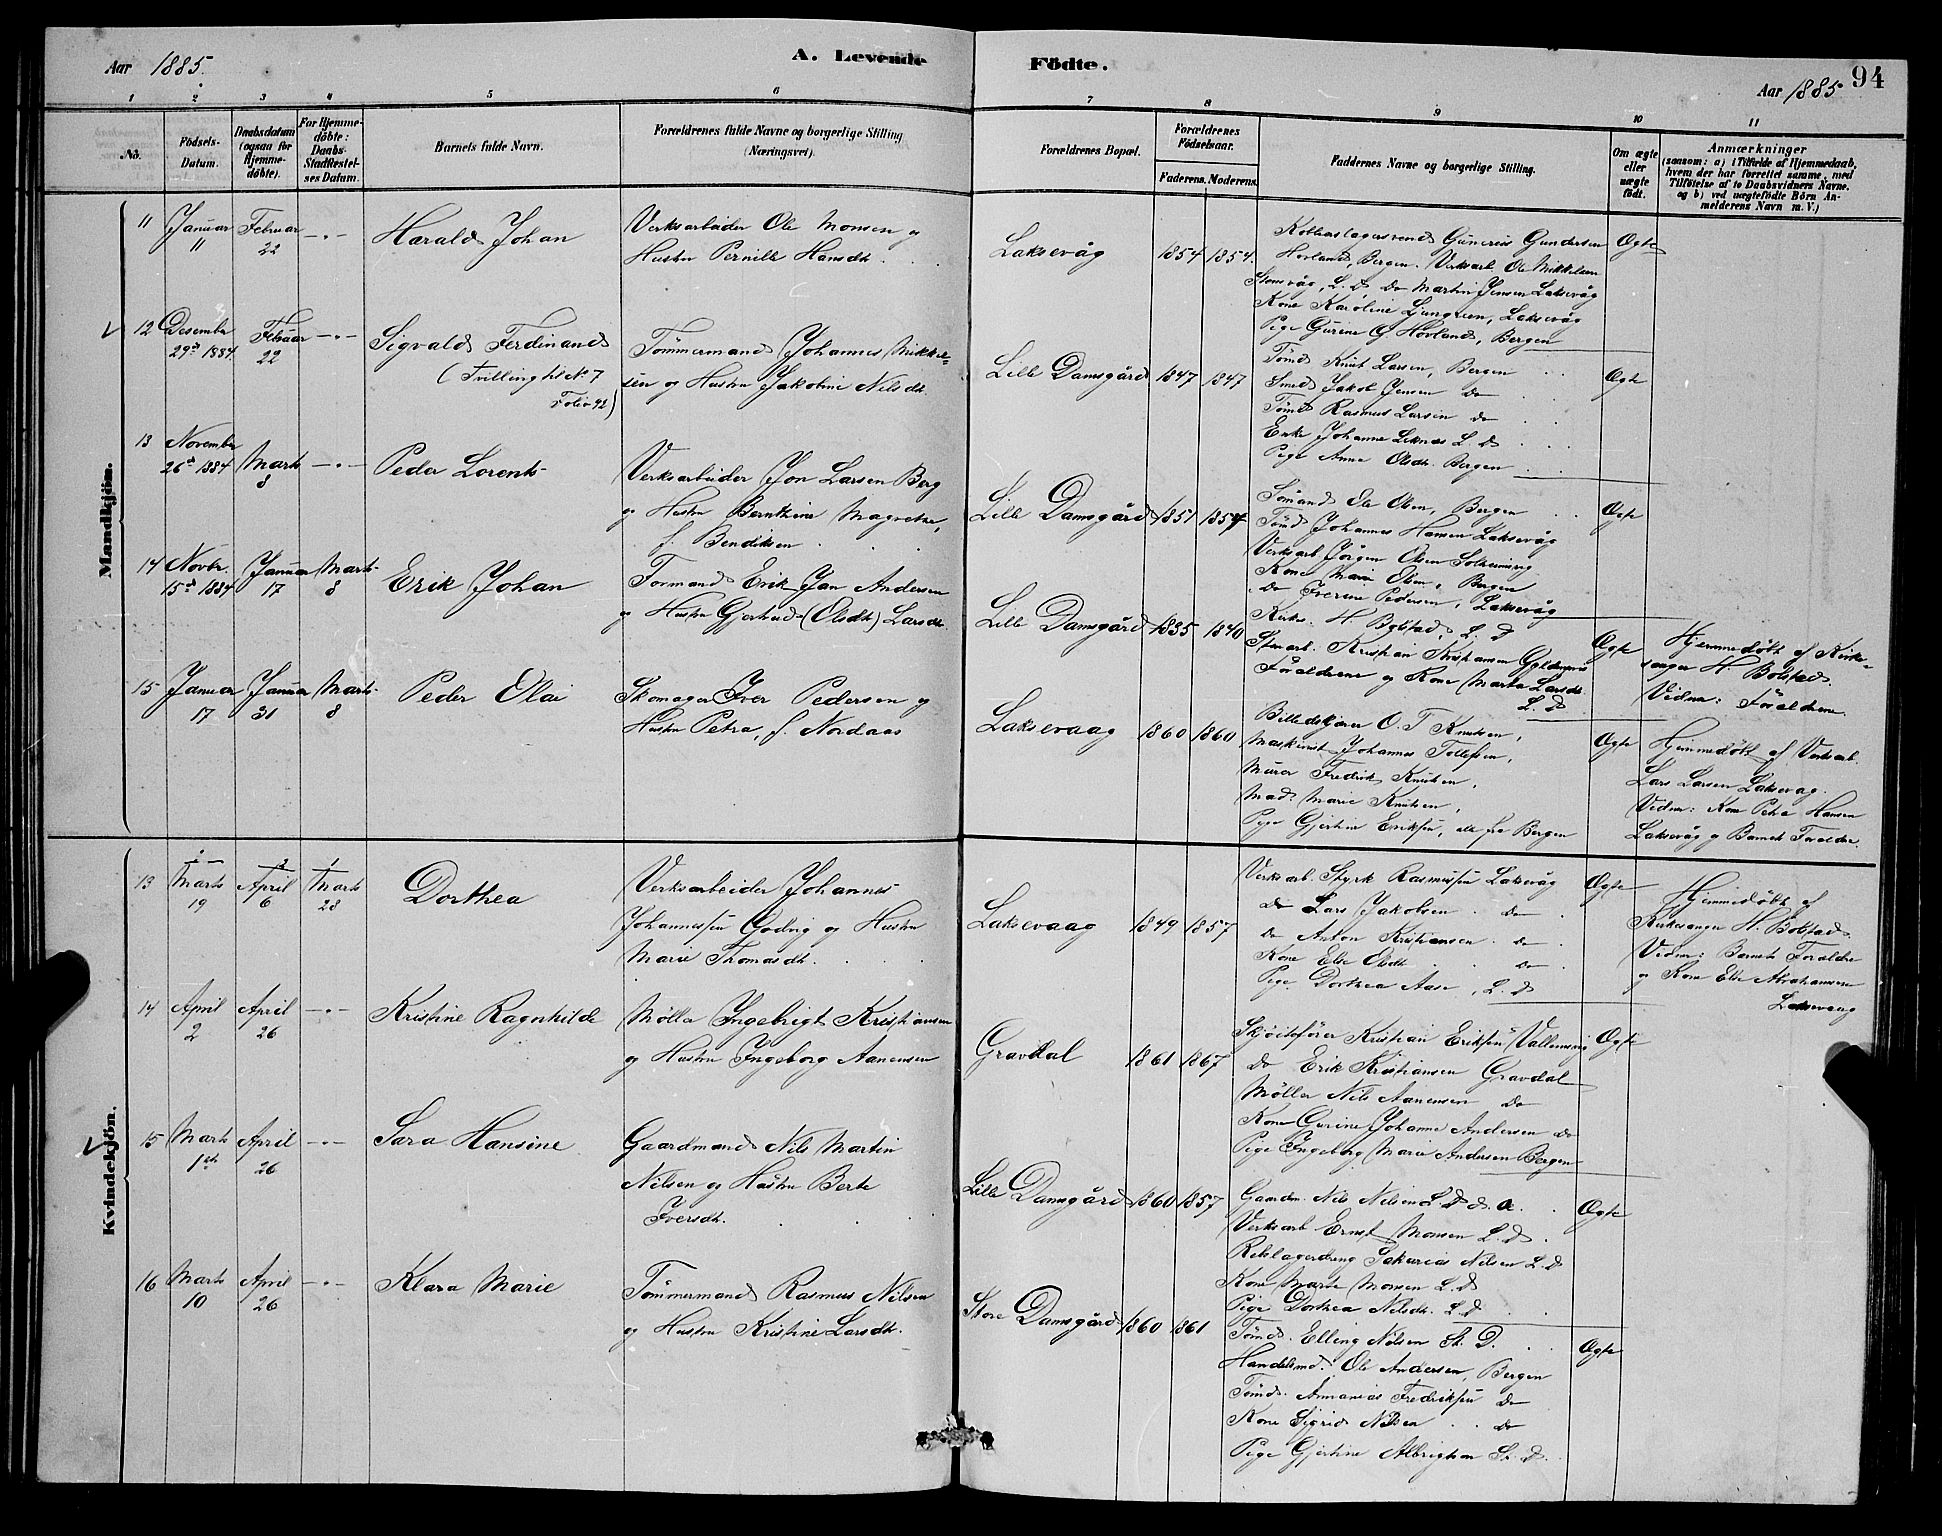 Aar 1885.
A. Levende
Födte.
94
Aar 1885
1 2 3 4 5 6 7 8 9 10 11
No.
Födsels-
Datum.
Daabsdatum
(ogsaa for
Hjemme-
döbte).
For Hjemme-
döbte:
Daabs-
Stadfæstel-
ses Datum.
Barnets fulde Navn.
Forældrenes fulde Navne og borgerlige Stilling
(Næringsvei).
Forældrenes Bopæl.
Forældrenes
Födselsaar.
Faderens. Moderens.
Faddernes Navne og borgerlige Stilling.
Om ægte
eller
uægte
födt.
Anmærkninger
(saasom: a) i Tilfælde af Hjemmedaab,
hvem der har forrettet samme, med
Tilföielse af to Daabsvidners Navne.
og b) ved uægtefödte Börn An-
melderens Navn m. V.)
Mandkjön.
11 Januar 11 Februar 22 -"-
Harald Johan
Verksarbeider Ole Monsen og
Hustru Pernille Hansdt.
Laksevåg 1854 1854.
Kobberslagersvend Gunerius Gundersen
Hovland, Bergen. Verksarb. Ole Mikkelsen
L. D. Do Martin Jensen Laksevåg
Kone Karoline Ljunggren, Laksevåg
Pige Gurine G. Hovland, Bergen
Ægte
12 Desember 29de 1884. Februar 22 -"-
Sigvald Ferdinand
(Tvilling til No 7
Folio 92)
Tømmermand Johannes Mikkel-
sen og Hustru Jakobine Nilsdt.
Lille Damsgård 1847 1847
Tømd Knut Larsen, Bergen
Smed Jakob Jensen do
Tømd Rasmus Larsen do
Enke Johanne Leknes L. D
Pige Anna Olsdt. Bergen
Ægte
13 November 26de 1884 Marts 8 -"-
Peder Lorents
Verksarbeider Jon Larsen Berg
og Hustru Bernthine Magrethe,
f. Bendiksen
Lille Damsgård 1851 1854
Sømand Ole Olsen, Bergen
Tømd Johannes Hansen Laksevåg
Verksarb. Jörgen Olsen Solheimsvig
Kone Marie Olsen, Bergen
do Iverine Pedersen, Laksevåg
Ægte
14 Novbr. 15de 1884 Januar 17 Marts 8
Erik Johan
Formand Erik Jan Andersen
og Hustru Gjertrud (Olsdt) Larsdt.
Lille Damsgård 1835 1840
Kirkes. H. Bolstad, L. D
Stenarb. Kristian Kristiansen
Forældrene og Kone Marta Larsdt
L. D
Ægte
Hjemmedøbt af Kirke-
sanger H. Bolstad.
Vidner: Forældrene
15 Januar 17 Januar 31 Marts 8
Peder Olai
Skomager Iver Pedersen og
Hustru Petra, f. Nordaas
Laksevaag 1860 1860
Billedskjærer O. T. Knutsen,
Maskinist Johannes Tollefsen,
Murer Fredrik Knutsen,
Mad: Marie Knutsen,
Pige Gjertine Eriksen, alle fra Bergen
Ægte
Hjemmedøbt af Verksarb.
Lars Larsen Laksevåg.
Vidner: Kone Petra Hansen
Laksevåg og Barnets Forældre.
Kvindekjön.
13 Marts 19 April 6 Marts 28
Dorthea
Verksarbeider Johannes
Johannessen Godvig og Hustru
Marie Thomasdt.
Laksevaag 1849 1857
Verksarb. Styrk Rasmussen Laksevåg
do Lars Jakobsen do
do Anton Kristiansen do
Kone Else Olsdt. do
Pige Dorthea Aase, L. D
Ægte
Hjemmedøbt af
Kirkesanger H. Bolstad
Vidner: Barnets Forældre
og Kone Else Abrahamsen
Laksevaag
14 April 2 April 26 -"-
Kristine Ragnhilde
Møller Ingebrigt Kristiansen
og Hustru Ingeborg Aanensen
Gravdal 1861 1867
Skjøitefører Kristian Eriksen
Do Erik Kristiansen Gravdal
Møller Nils Aanensen do
Kone Gurine Johanne Andersen do
Pige Ingeborg Marie Andersen Bergen
Ægte
15 Marts April 26 -"-
Sara Hansine
Gaardmand Nils Martin
Nilsen og Hustru Berte
Iversdt.
Lille Damsgård 1860 1857
Gaardm. Nils Nilsen L. D. d. æ.
Verksarb. Ernst Monsen L. D.
Rebslagerdreng Sakarias Nilsen L. D
Kone Marta Monsen L. D
Pige Dorthea Nilsdt. L. D
Ægte
16 Marts 10 April 26 -"-
Klara Marie
Tømmermand Rasmus Nilsen
og Hustru Kristine Larsdt.
Store Damsgård 1860 1861
Tømd. Elling Nilsen St. D.
Handelsmd. Ole Andersen, Bergen
Tømd. Annanias Fredriksen do
Kone Sigrid Nilsen do
Pige Gjertine Albrigtsen St. D.
Ægte